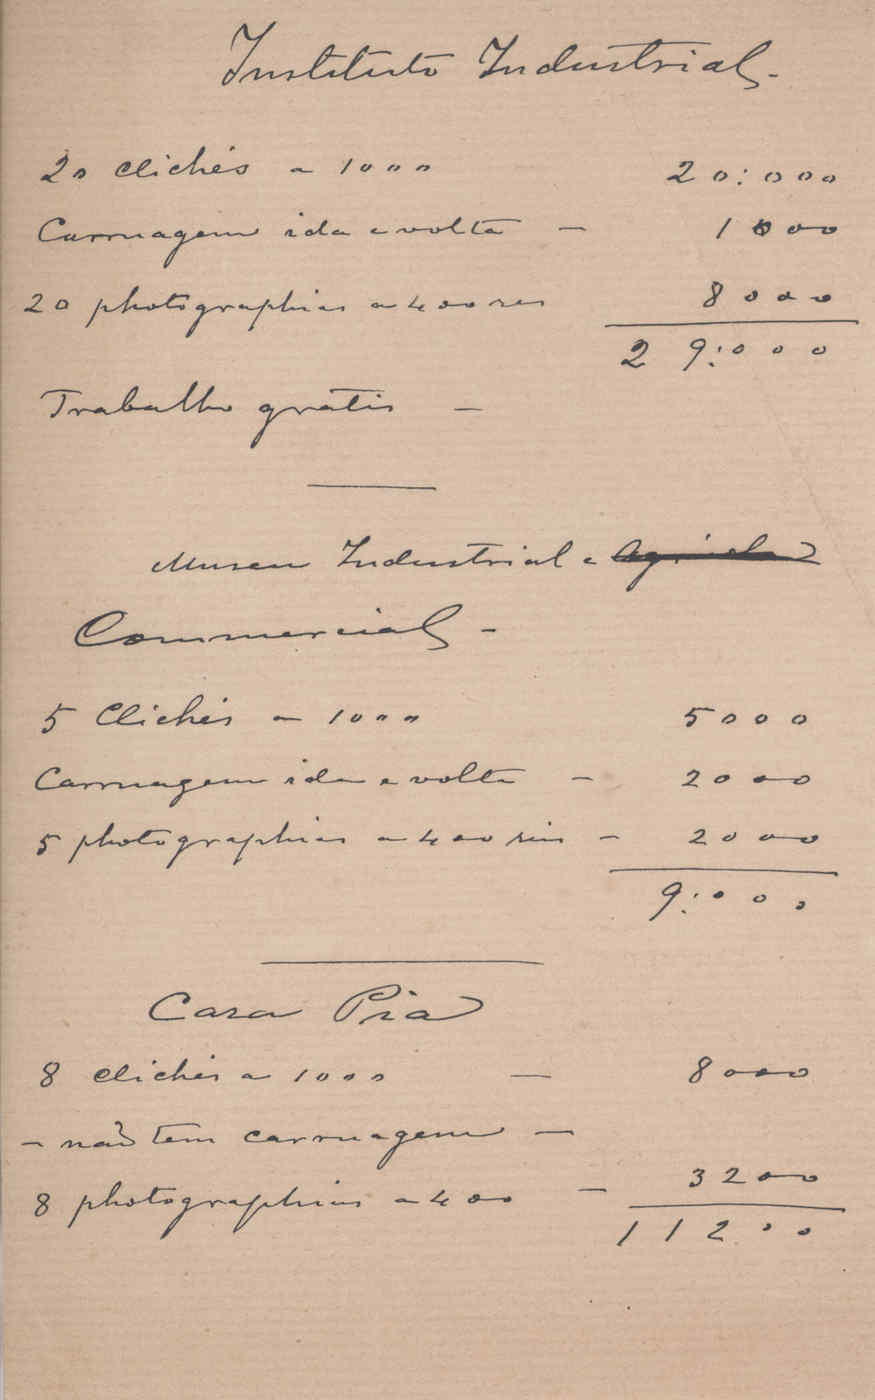 Instituto Industrial.
20 clichés a 1000 20:000
Carruagem ida e volta – 1000
20 photographias a 400 reis 8000
29:000
Trabalho gratis –
Museu Industrial e Agricola
Commercial –
5 Clichés a 1000 5000
Carruagem ida e volta – 2000
5 photographias a 400 reis – 2000
9:000
Casa Pia
8 clichés a 1000 – 8000
– não tem carruagem –
8 photographias a 400 – 3200
11200